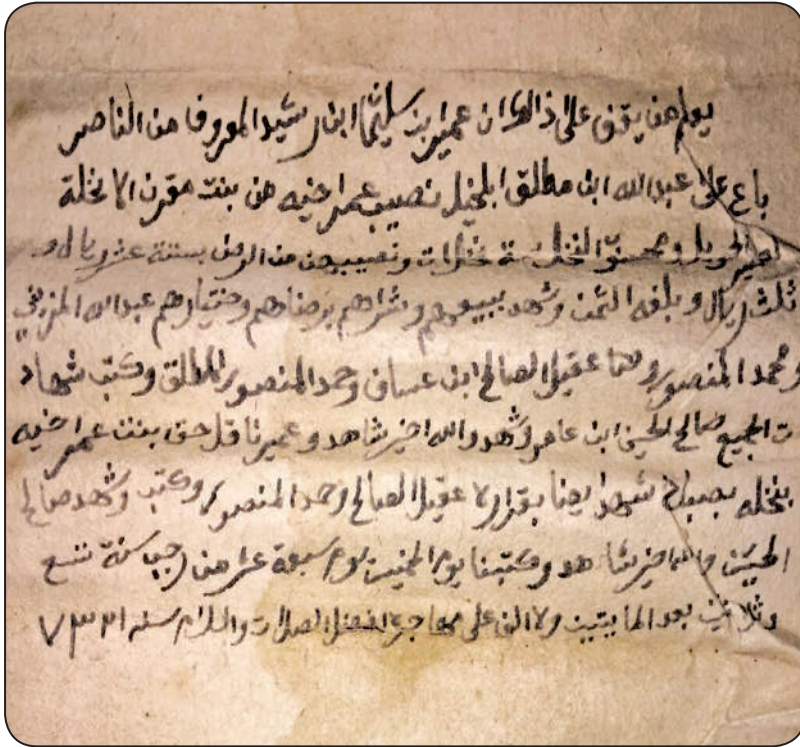 يعلم من يقف على ذالك ان عمير بن سليمان ابن رشيد المعروف من الناصر
باع على عبدالله ابن مطلق نصيب عمر اخيه من بنت مقرن الا نخلة
نخلات ونصيبهن من الارض بستة عشر ريال و
ثلث ريال و بلغه الثمن وشهد ببيعهم وشراهم برضاهم وختيارهم عبدالله المزيني
وحمد المنصور عقيل الصالح ابن عساف وحمد المنصور المطلق وكتب شهاد
ت الجميع صالح الحسن ابن عامر وشهد والله اخير شاهد وعمير ناقل حق بنت عمر اخيه
بنخله شهد بقرار عقيل الصالح وحمد المنصور وكتب وشهد صالح
الحسن والله خير شاهد وكتبنا يوم سبعة عشر من رجب سنة تسع
وثلاثين بعد المايتين ولالف على مهاجرها افضل الصلات والسلام سنه